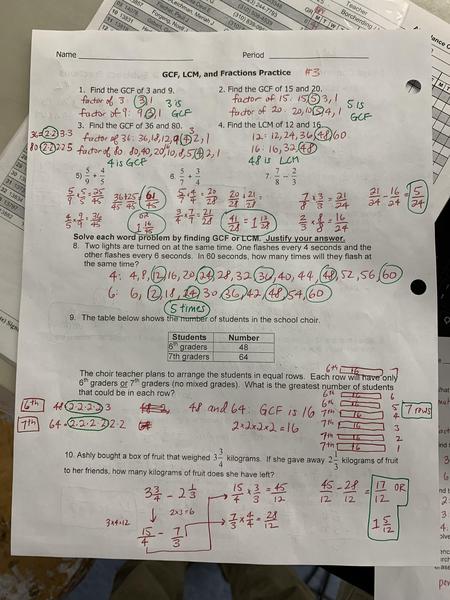 Name
Period
GCF, LCM, and Fractions Practice #3
1. Find the GCF of 3 and 9.
factor of 3: 3, 1
factor of 9: 9, 3, 1
3 is GCF
2. Find the GCF of 15 and 20.
factor of 15: 15, 5, 3, 1
factor of 20: 20, 10, 5, 4, 1
5 is GCF
3. Find the GCF of 36 and 80.
36 2·2·3·3
80 2·2·2·2·5
factor of 36: 36, 18, 12, 9, 4, 3, 2, 1
factor of 80: 80, 40, 20, 10, 8, 5, 4, 2, 1
4 is GCF
4. Find the LCM of 12 and 16.
12: 12, 24, 36, 48, 60
16: 16, 32, 48
48 is LCM
5) 5/9 + 4/5
5/9 × 5/5 = 25/45
4/5 × 9/9 = 36/45
36/45 + 25/45 = 61/45
or
1 16/45
6. 5/7 + 3/4
5/7 × 4/4 = 20/28
3/4 × 7/7 = 21/28
20/28 + 21/28 =
41/28 = 1 13/28
7. 7/8 − 2/3
7/8 × 3/3 = 21/24
2/3 × 8/8 = 16/24
21/24 − 16/24 = 5/24
Solve each word problem by finding GCF or LCM. Justify your answer.
8. Two lights are turned on at the same time. One flashes every 4 seconds and the
other flashes every 6 seconds. In 60 seconds, how many times will they flash at
the same time?
4: 4, 8, 12, 16, 20, 24, 28, 32, 36, 40, 44, 48, 52, 56, 60
6: 6, 12, 18, 24, 30, 36, 42, 48, 54, 60
5 times
9. The table below shows the number of students in the school choir.
Students Number
6th graders 48
7th graders 64
The choir teacher plans to arrange the students in equal rows. Each row will have only
6th graders or 7th graders (no mixed grades). What is the greatest number of students
that could be in each row?
6th 48 2·2·2·2·3
7th 64 2·2·2·2·2·2
48 and 64: GCF is 16
2×2×2×2 = 16
6th 16 7
6th 16 6
6th 16 5
7th 16 4
7th 16 3
7th 16 2
7th 16 1
7 rows
10. Ashly bought a box of fruit that weighed 3 3/4 kilograms. If she gave away 2 1/3 kilograms of fruit
to her friends, how many kilograms of fruit does she have left?
3 3/4 − 2 1/3
3×4=12
2×3=6
15/4 − 7/3
15/4 × 3/3 = 45/12
7/3 × 4/4 = 28/12
45/12 − 28/12 = 17/12 OR
1 5/12